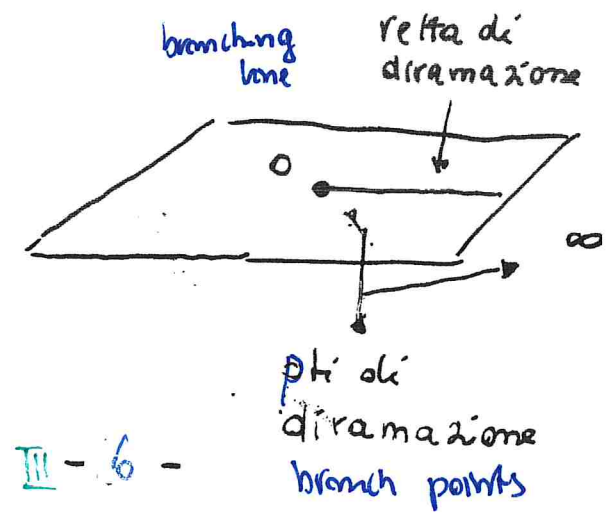 branching
line
retta di
diramazione
O
∞
pti di
diramazione
branch points
III - 6 -